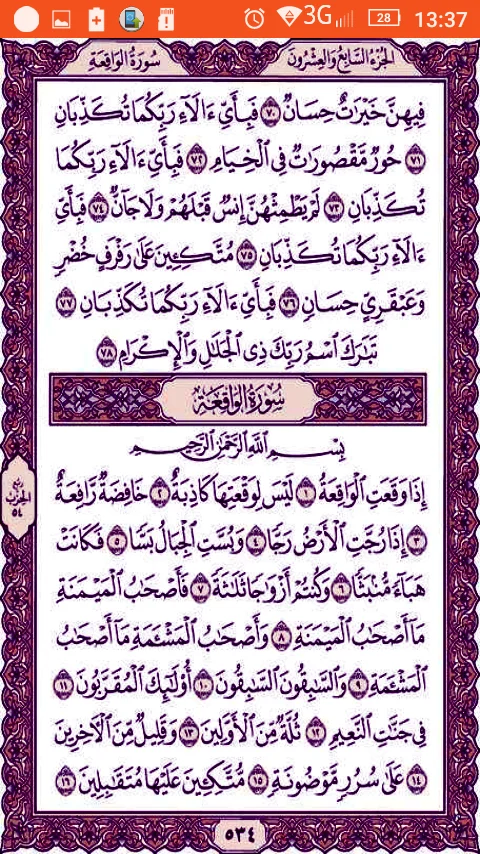 3G 28 13:37
سُورَةُ الوَاقِعَةِ الجُزءُ السَّابِعُ وَالعِشْرُونَ
فِيهِنَّ خَيْرَٰتٌ حِسَانٌ ٧٠ فَبِأَيِّ ءَالَآءِ رَبِّكُمَا تُكَذِّبَانِ
٧١ حُورٌ مَّقْصُورَٰتٌ فِى ٱلْخِيَامِ ٧٢ فَبِأَيِّ ءَالَآءِ رَبِّكُمَا
تُكَذِّبَانِ ٧٣ لَمْ يَطْمِثْهُنَّ إِنسٌ قَبْلَهُمْ وَلَا جَآنٌّ ٧٤ فَبِأَيِّ
ءَالَآءِ رَبِّكُمَا تُكَذِّبَانِ ٧٥ مُتَّكِـِٔينَ عَلَىٰ رَفْرَفٍ خُضْرٍ
وَعَبْقَرِىٍّ حِسَانٍ ٧٦ فَبِأَيِّ ءَالَآءِ رَبِّكُمَا تُكَذِّبَانِ ٧٧
تَبَٰرَكَ ٱسْمُ رَبِّكَ ذِى ٱلْجَلَٰلِ وَٱلْإِكْرَامِ ٧٨
سُورَةُ الوَاقِعَةِ
بِسْمِ ٱللَّهِ ٱلرَّحْمَٰنِ ٱلرَّحِيمِ
إِذَا وَقَعَتِ ٱلْوَاقِعَةُ ١ لَيْسَ لِوَقْعَتِهَا كَاذِبَةٌ ٢ خَافِضَةٌ رَّافِعَةٌ
٣ إِذَا رُجَّتِ ٱلْأَرْضُ رَجًّا ٤ وَبُسَّتِ ٱلْجِبَالُ بَسًّا ٥ فَكَانَتْ
هَبَآءً مُّنۢبَثًّا ٦ وَكُنتُمْ أَزْوَٰجًا ثَلَٰثَةً ٧ فَأَصْحَٰبُ ٱلْمَيْمَنَةِ
مَآ أَصْحَٰبُ ٱلْمَيْمَنَةِ ٨ وَأَصْحَٰبُ ٱلْمَشْـَٔمَةِ مَآ أَصْحَٰبُ
ٱلْمَشْـَٔمَةِ ٩ وَٱلسَّٰبِقُونَ ٱلسَّٰبِقُونَ ١٠ أُو۟لَٰٓئِكَ ٱلْمُقَرَّبُونَ ١١
فِى جَنَّٰتِ ٱلنَّعِيمِ ١٢ ثُلَّةٌ مِّنَ ٱلْأَوَّلِينَ ١٣ وَقَلِيلٌ مِّنَ ٱلْءَاخِرِينَ
١٤ عَلَىٰ سُرُرٍ مَّوْضُونَةٍ ١٥ مُّتَّكِـِٔينَ عَلَيْهَا مُتَقَٰبِلِينَ ١٦
ربع
الحزب
٥٤
٥٣٤